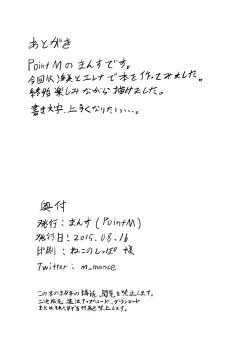 あとがき
PointMのまんすです。
今回は渚とエレナで本を作ってみました。
終始楽しみながら描けました。
書き文字、上手くなりたい…。
奥付
発行：まんす(PointM)
発行日：2015.08.16
印刷：ねこのしっぽ 様
Twitter：m_mance
この本の全部の転載、閲覧を禁止します。
二次配布、違法アップロード、ダウンロード